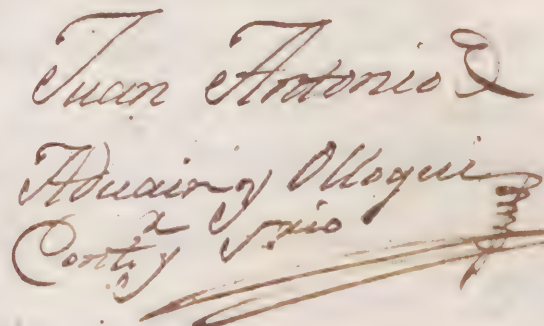 Juan Antonio D
Aduain y Olloqui
Cont.ª y srio